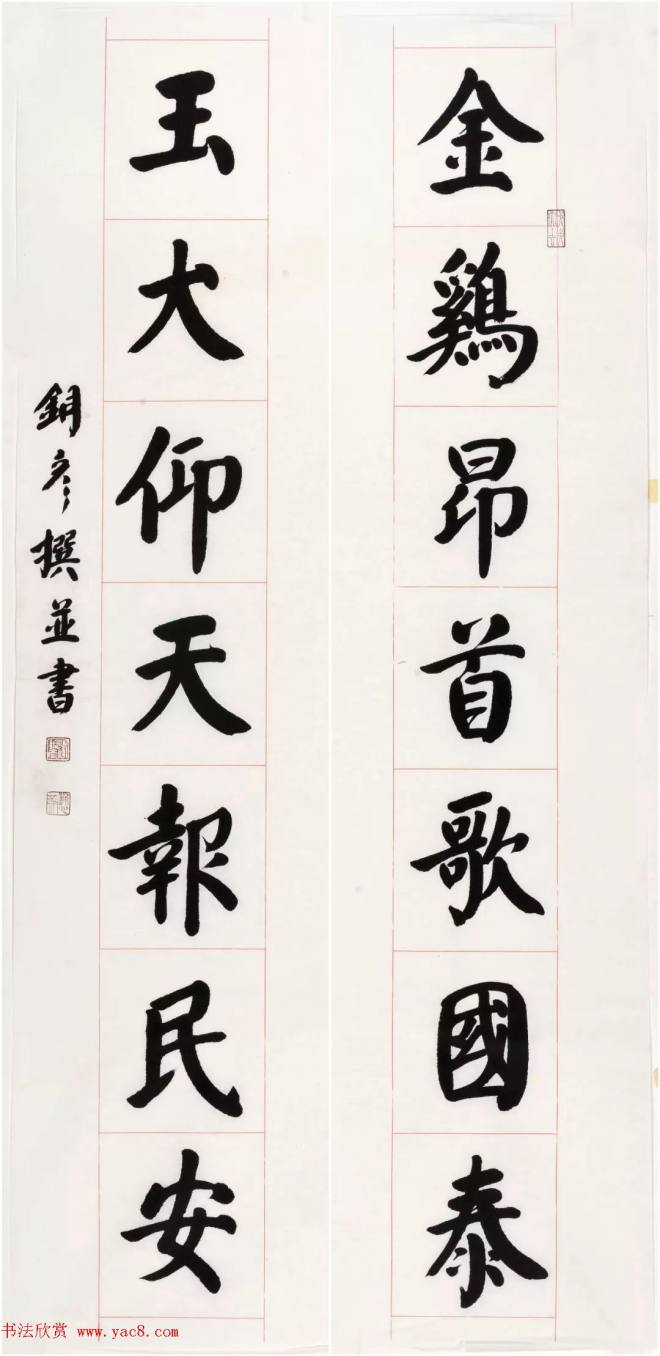 金鷄昂首歌國泰
玉犬仰天報民安
銅彥撰並書
书法欣赏 www.yac8.com